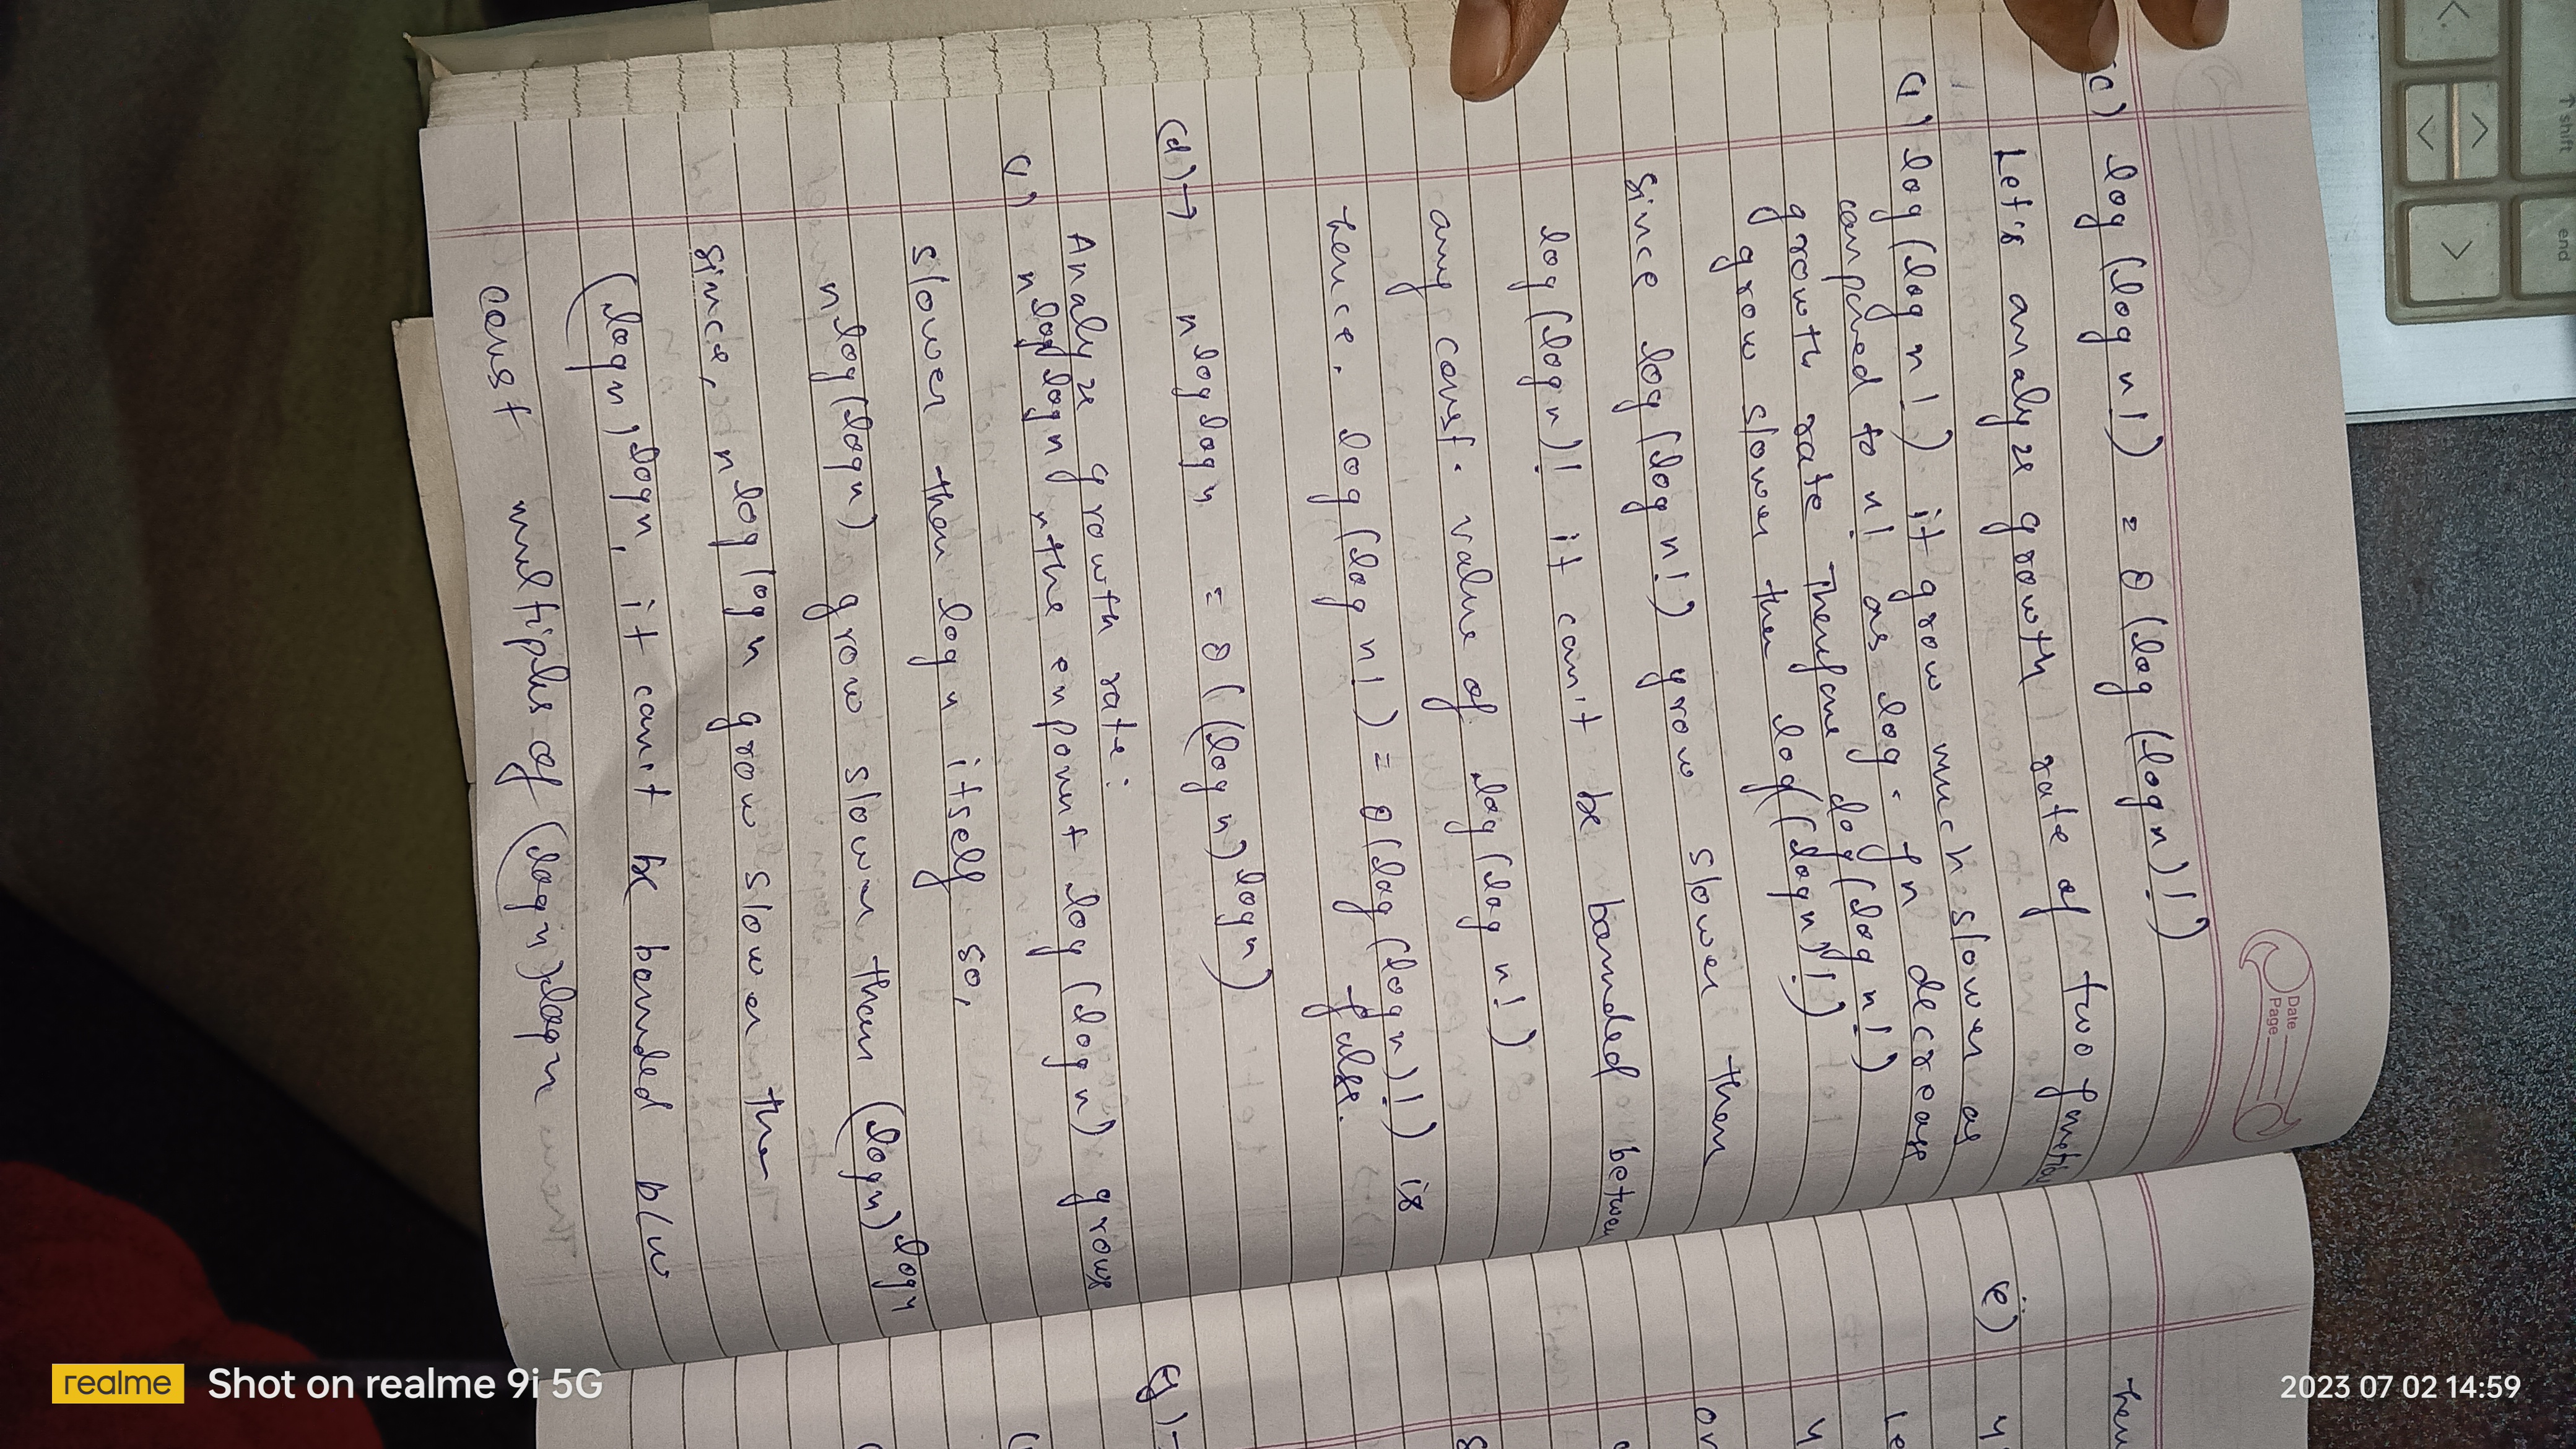 ↑ shift
end
Date
Page
(c) log (log n!) = θ (log (log n)!)
Let's analyze growth rate of two function
(i) log (log n!) it grow much slower as
compared to n! as log. fn decrease
growth rate Therefore log (log n!)
grow slower then log((log n)!)
since log (log n!) grow slower then
log (log n)! it can't be bounded between
any const. value of log (log n!)
hence. log (log n!) = θ (log (log n)!) is
false.
(d)→ n^log log n = θ ((log n)^log n)
Analyze growth rate:
(i) n^log log n, the exponent log (log n) grows
slower then log n itself so,
n^log (log n) grow slower than (log n)^log n
since, n^log log n grow slower the
(log n)^log n, it can't be bounded b/w
const multiples of (log n)^log n
hen
(e)
4
Le
4
or
g)-
2023 07 02 14:59
realme Shot on realme 9i 5G